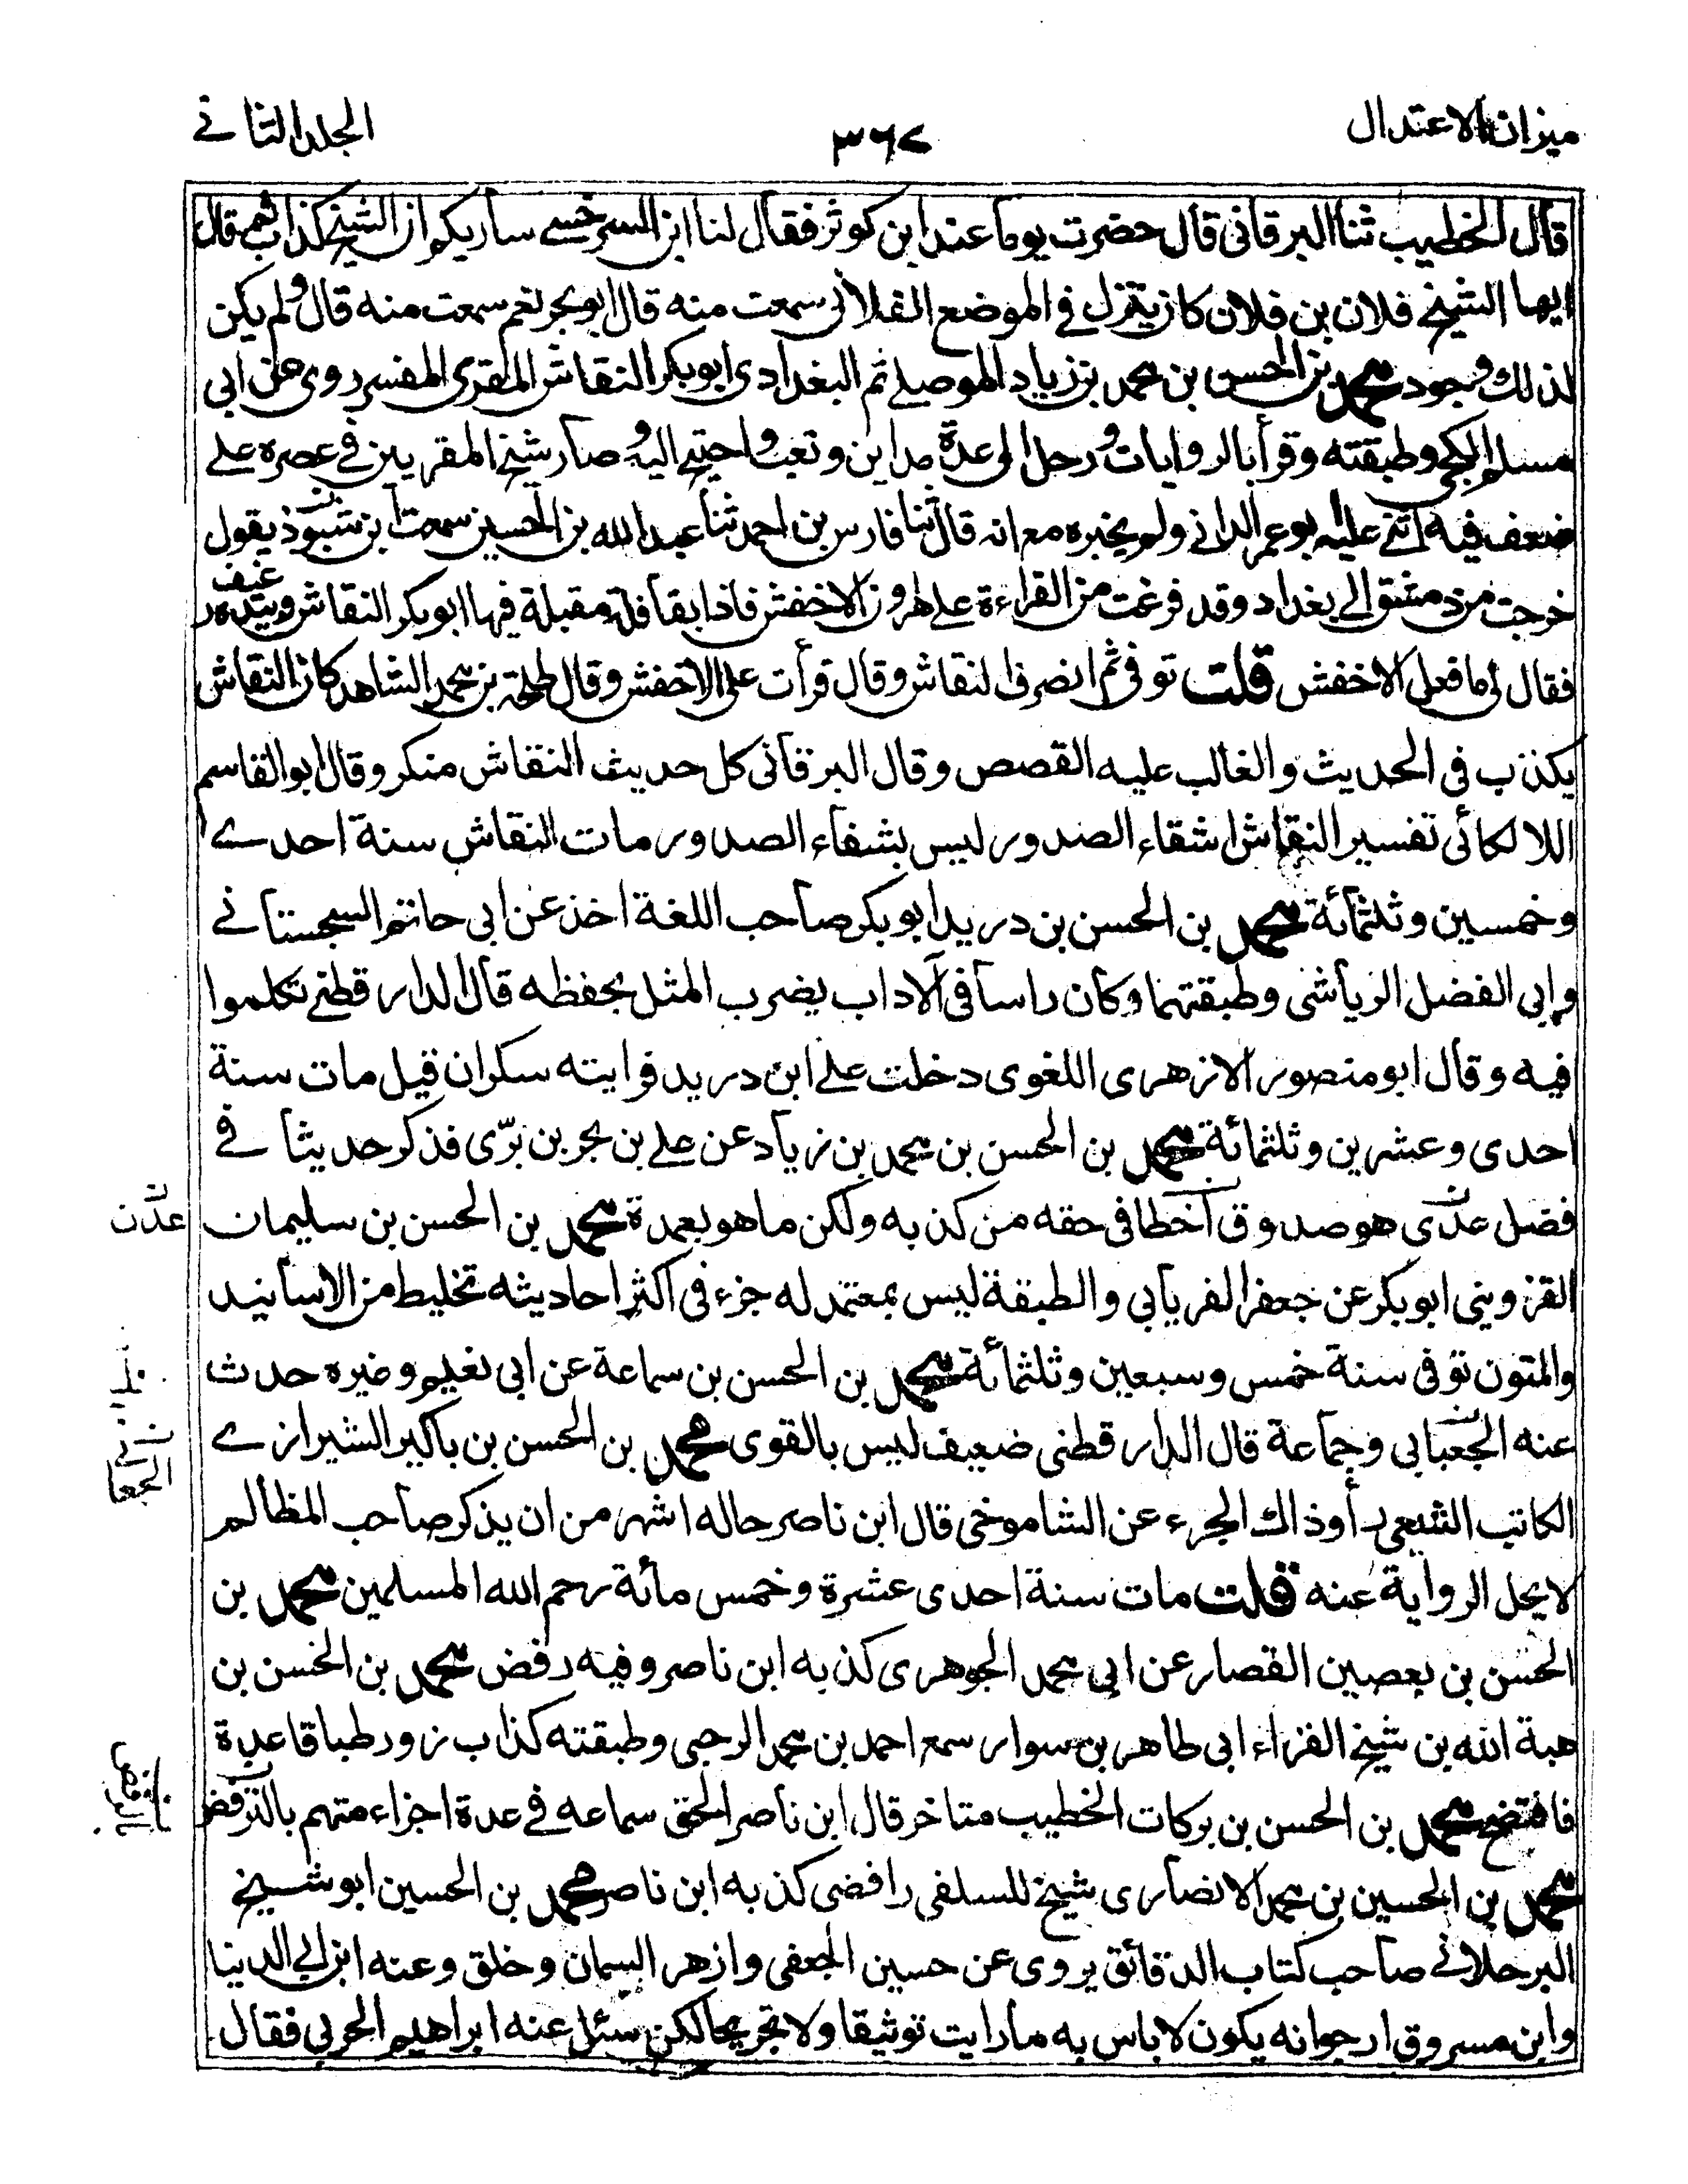 ميزان الاعتدال
٣٦٧
المجلد الثانے
قال الخطيب ثنا البرقانى قال حضرت يوما عند ابن كوثر فقال لنا ابن السرخسے ساريكم ان الشيخ كذاب ثم قال
ايها الشيخ فلان بن فلان كان ينزل فى الموضع الفلانى سمعت منه قال ابو بحر نعم سمعت منه قال ولم يكن
لذلك وجود محمد بن الحسن بن محمد بن زياد الموصلے ثم البغدادى ابو بكر النقاش المقرى المفسر روى عن ابى
مسلم الكجى وطبقته وقرأ بالروايات ورحل الى عدة مداين وتعب واحتيج اليه وصار شيخ المقريين فى عصره علے
ضعف فيه اثنى عليه ابو عمرو الدانى ولم يخبره مع انه قال ثنا فارس بن احمد ثنا عبد الله بن الحسين سمعت ابن شنبوذ يقول
خرجت من دمشق الى بغداد وقد فرغت من القراءة على هارون الاخفش فاذا بقافلة مقبلة فيها ابو بكر النقاش وبيده رغيف
فقال لى ما فعل الاخفش قلت توفى ثم انصرف النقاش وقال قرأت على الاخفش وقال طلحة بن محمد الشاهد كان النقاش
يكذب فى الحديث والغالب عليه القصص وقال البرقانى كل حديث النقاش منكر وقال ابو القاسم
اللالكائى تفسير النقاش اشقاء الصدور ليس بشفاء الصدور مات النقاش سنة احدے
وخمسين وثلثمائة محمد بن الحسن بن دريد ابو بكر صاحب اللغة اخذ عن ابى حاتم السجستانے
وابى الفضل الرياشى وطبقتهما وكان راسا فى الآداب يضرب المثل بحفظه قال الدارقطنى تكلموا
فيه وقال ابو منصور الازهرى اللغوى دخلت علے ابن دريد فرايته سكران قيل مات سنة
احدى وعشرين وثلثمائة محمد بن الحسن بن محمد بن زياد عن علے بن بحر بن برّى فذكر حديثا فے
فضل عدّى هو صدوق اخطا فى حقه من كذبه ولكن ما هو بعمدة محمد بن الحسن بن سليمان
عدّن
القزوينى ابو بكر عن جعفر الفريابى والطبقة ليس بمعتمد له جزء فى اكثر احاديثه تخليط من الاسانيد
والمتون توفى سنة خمس وسبعين وثلثمائة محمد بن الحسن بن سماعة عن ابى نعيم وغيره حدث
عنه الجعبابى وجماعة قال الدارقطنى ضعيف ليس بالقوى محمد بن الحسن بن باكير الشيرازے
الجعا
الكاتب الشيعى راوذاك الجزء عن الشاموخى قال ابن ناصر حاله اشهر من ان يذكر صاحب المظالم
لا يحل الرواية عنه قلت مات سنة احدى عشرة وخمس مائة رحم الله المسلمين محمد بن
الحسن بن بعصين القصار عن ابى محمد الجوهرى كذبه ابن ناصر وفيه رفض محمد بن الحسن بن
هبة الله بن شيخ القراء ابى طاهر بن سوار سمع احمد بن محمد الرحبى وطبقته كذاب زور طباقا عدة
فافتضح محمد بن الحسن بن بركات الخطيب متاخر قال ابن ناصر الحق سماعه فے عدة اجزاء متهم بالترفض
محمد بن الحسين بن محمد الانصارى شيخ للسلفى رافضى كذبه ابن ناصر محمد بن الحسين ابو شيخ
البرجلانے صاحب كتاب الدقائق يروى عن حسين الجعفى وازهر السمان وخلق وعنه ابن ابى الدنيا
وابن مسروق ارجوانه يكون لا باس به ما رايت توثيقا ولا تجريحا لكن سئل عنه ابراهيم الحربى فقال